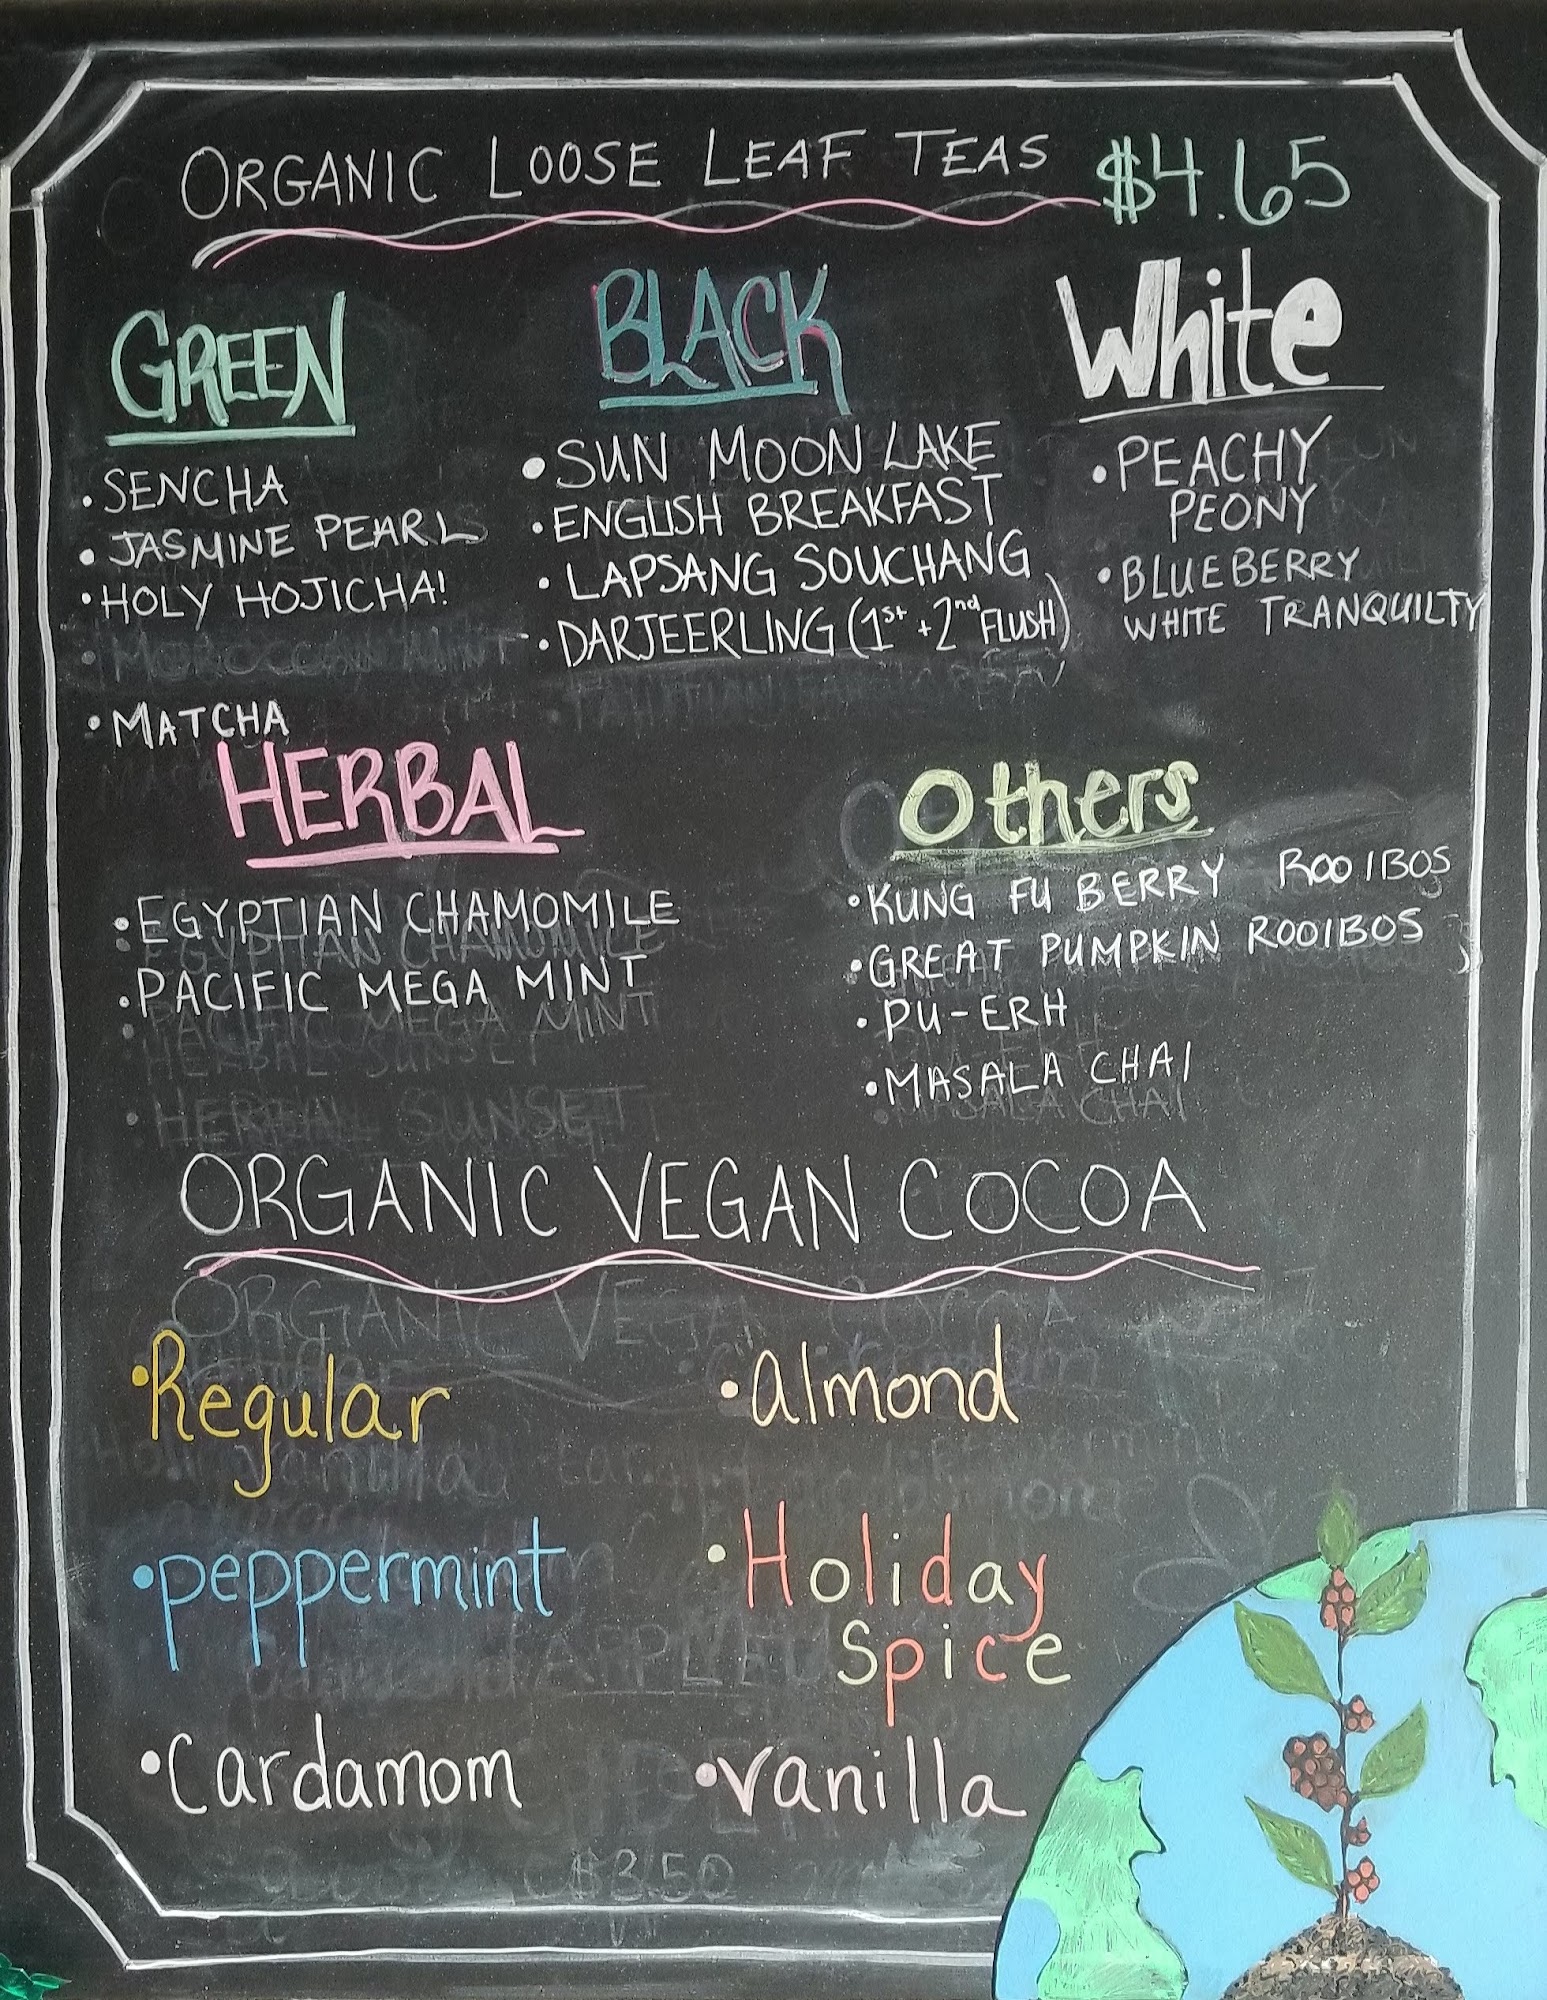 ORGANIC LOOSE LEAF TEAS $4.65
GREEN
• SENCHA
• JASMINE PEARL
• HOLY HOJICHA!
• MOROCCAN MINT
• MATCHA
BLACK
• SUN MOON LAKE
• ENGLISH BREAKFAST
• LAPSANG SOUCHANG
• DARJEERLING (1st + 2nd FLUSH)
White
• PEACHY
PEONY
• BLUEBERRY
WHITE TRANQUILTY
HERBAL
• EGYPTIAN CHAMOMILE
• PACIFIC MEGA MINT
• HERBAL SUNSET
Others
• KUNG FU BERRY ROOIBOS
• GREAT PUMPKIN ROOIBOS
• PU-ERH
• MASALA CHAI
ORGANIC VEGAN COCOA
• Regular
• Almond
• peppermint
• Holiday
Spice
• Cardamom
• Vanilla
$3.50